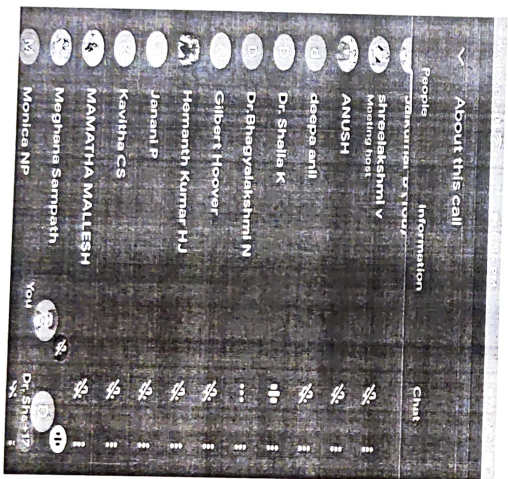 About this call
People Information Chat
shreelakshmi v
Meeting host
ANUSH
deepa anil
Dr. Shaila K
Dr.Bhagyalakshmi N
Gilbert Hoover
Hemanth Kumar HJ
Janani P
Kavitha CS
MAMATHA MALLESH
Meghana Sampath
Monica NP
You